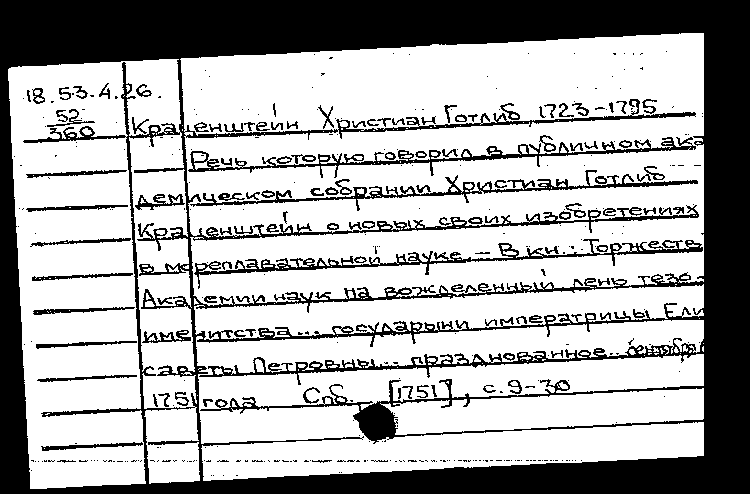 18.53.4.26.
52
360
Краценштейн, Христиан Готлиб, 1723-1795
Речь, которую говорил в публичном ака
демическом собрании Христиан Готлиб
Краценштейн о новых своих изобретениях
в мореплавательной науке. — В кн.: Торжеств
Академии наук на вожделенный день тезо-
именитства... государыни императрицы Ели
саветы Петровны... празднованное...
1751 года, Спб., [1751], с. 9-30